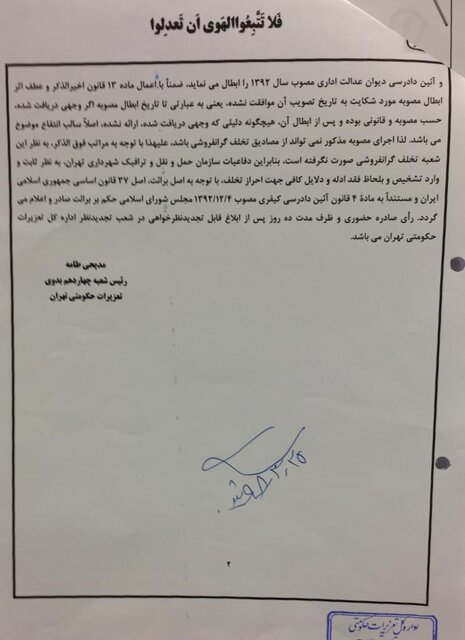 فَلا تَتَّبِعُوا الهَوی اَن تَعدِلوا
و آئین دادرسی دیوان عدالت اداری مصوب سال ۱۳۹۲ را ابطال می نماید، ضمناً با اعمال ماده ۱۳ قانون اخیرالذکر و عطف اثر
ابطال مصوبه مورد شکایت به تاریخ تصویب آن موافقت نشده، یعنی به عبارتی تا تاریخ ابطال مصوبه اگر وجهی دریافت شده،
حسب مصوبه و قانونی بوده و پس از ابطال آن، هیچگونه دلیلی که وجهی دریافت شده، ارائه نشده، اصلاً سالب انتفاع موضوع
می باشد. لذا اجرای مصوبه مذکور نمی تواند از مصادیق تخلف گرانفروشی باشد، علیهذا با توجه به مراتب فوق الذکر، به نظر این
شعبه تخلف گرانفروشی صورت نگرفته است، بنابراین دفاعیات سازمان حمل و نقل و ترافیک شهرداری تهران، به نظر ثابت و
وارد تشخیص و بلحاظ فقد ادله و دلایل کافی جهت احراز تخلف، با توجه به اصل برائت، اصل ۳۷ قانون اساسی جمهوری اسلامی
ایران و مستنداً به مادهٔ ۴ قانون آئین دادرسی کیفری مصوب ۱۳۹۲/۱۲/۴ مجلس شورای اسلامی حکم بر برائت صادر و اعلام می
گردد. رأی صادره حضوری و ظرف مدت ده روز پس از ابلاغ قابل تجدیدنظرخواهی در شعب تجدیدنظر اداره کل تعزیرات
حکومتی تهران می باشد.
مدیحی طامه
رئیس شعبه چهاردهم بدوی
تعزیرات حکومتی تهران
۲
اداره کل تعزیرات حکومتی